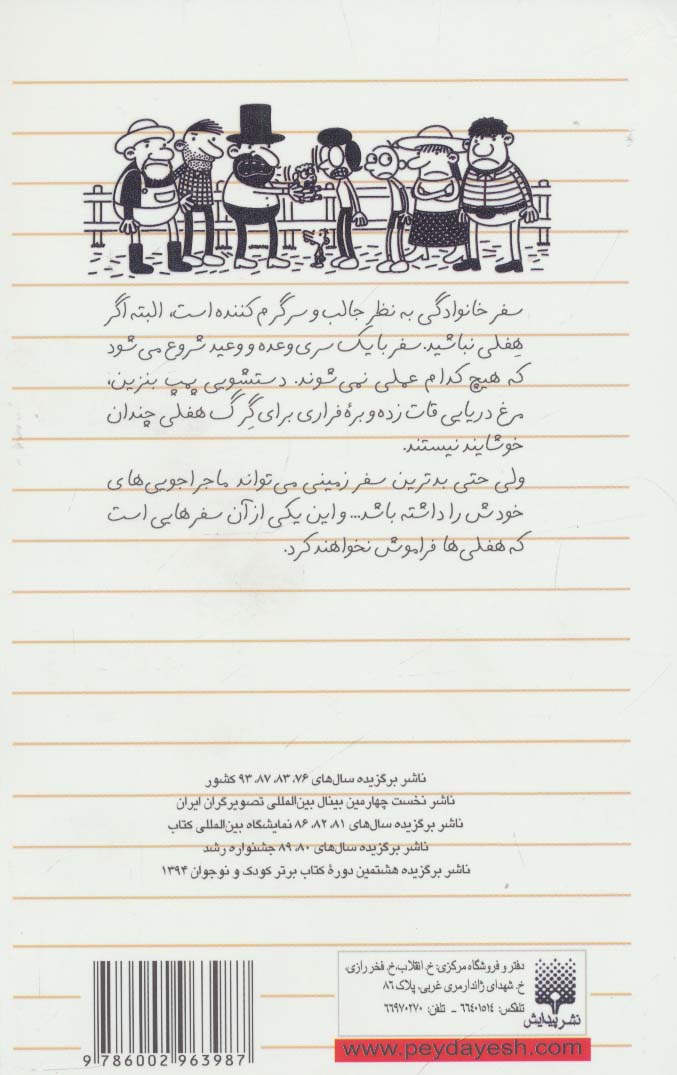 سفر خانوادگی به نظرِ جالب و سرگرم کننده است، البته اگر
هِفلی نباشید. سفر با یک سری وعده و وعید شروع می‌شود
که هیچ کدام عملی نمی‌شوند. دستشویی پمپ بنزین،
مرغ دریایی قات زده و برهٔ فراری برای گِرِگ هفلی چندان
خوشایند نیستند.
ولی حتی بدترین سفر زمینی می‌تواند ماجراجویی‌های
خودش را داشته باشد... و این یکی از آن سفرهایی است
که هفلی‌ها فراموش نخواهند کرد.
ناشر برگزیده سال‌های ۷۶، ۸۳، ۸۷، ۹۳ کشور
ناشر نخست چهارمین بینال بین‌المللی تصویرگران ایران
ناشر برگزیده سال‌های ۸۱، ۸۲، ۸۶ نمایشگاه بین‌المللی کتاب
ناشر برگزیده سال‌های ۸۰، ۸۹ جشنواره رشد
ناشر برگزیده هشتمین دورهٔ کتاب برتر کودک و نوجوان ۱۳۹۴
دفتر و فروشگاه مرکزی: خ. انقلاب، خ. فخررازی،
خ. شهدای ژاندارمری غربی، پلاک ۸۶
تلفکس: ۶۶۴۰۱۵۱۴ - تلفن: ۶۶۹۷۰۲۷۰
نشر پیدایش
www.peydayesh.com
9 786002 963987